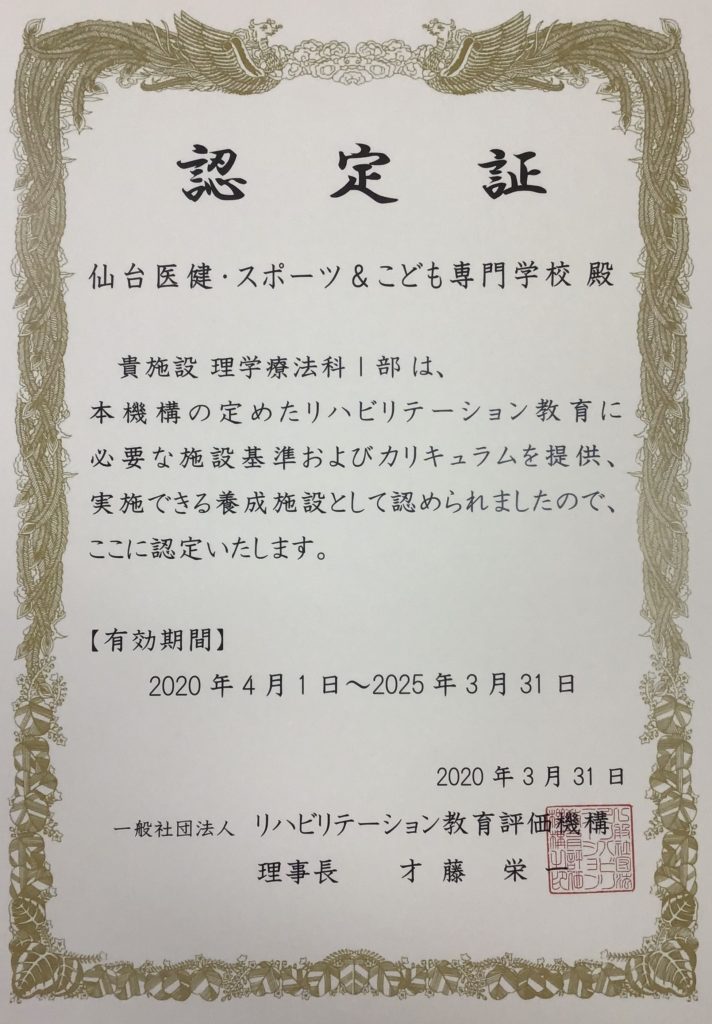 認定証
仙台医健・スポーツ&こども専門学校 殿
貴施設 理学療法科Ⅰ部 は、
本機構の定めたリハビリテーション教育に
必要な施設基準およびカリキュラムを提供、
実施できる養成施設として認められましたので、
ここに認定いたします。
【有効期間】
2020 年 4 月 1 日～2025 年 3 月 31 日
2020 年 3 月 31 日
一般社団法人 リハビリテーション教育評価機構
理事長 才藤 栄一